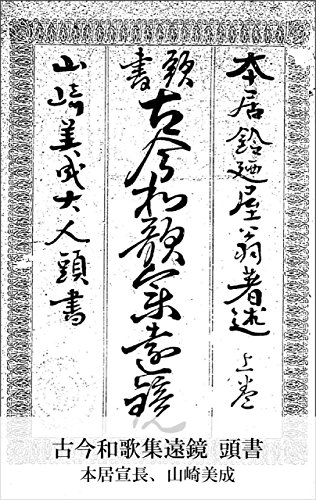 本居鈴迺屋翁著述 上巻
頭書 古今和歌集遠鏡
山崎美成大人頭書
古今和歌集遠鏡 頭書
本居宣長、山崎美成